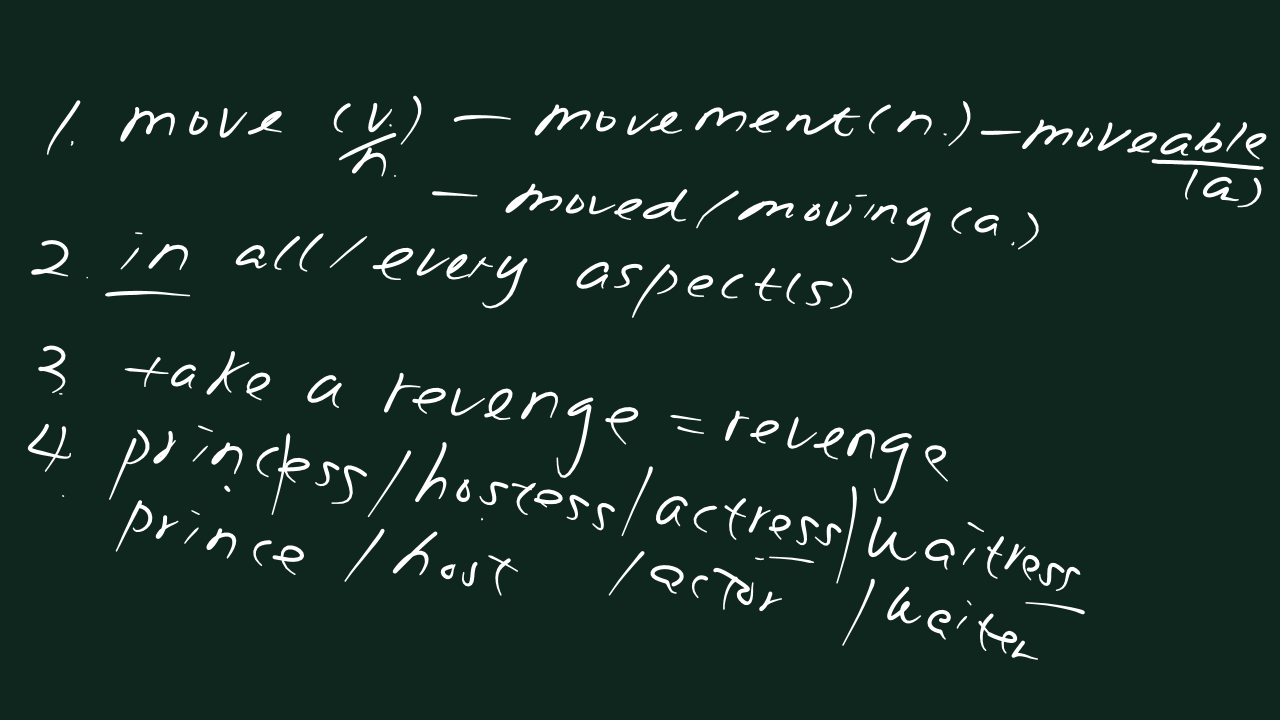 1. move (v.)/n. - movement(n.) - moveable (a)
- moved/moving(a.)
2. in all/every aspect(s)
3. take a revenge = revenge
4. princess/hostess/actress/waitress
prince/host/actor/waiter